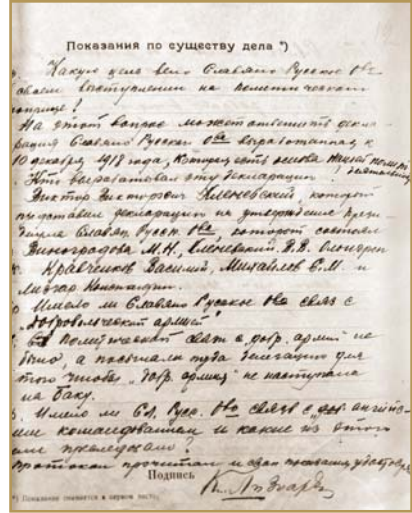 Показания по существу дела *)
Какую цель вело Славяно Русское Обв
своем выступлении на политическом
поприще?
На этот вопрос может ответить декла-
рация Славяно Русскаго Обва выработанная к
10 декабря 1918 года, которая есть основа нашей
Кто вырабатовал эту декларацию.
Виктор Викторович Кленевский, который
представил декларацию на утверждение
Славян. Русск. Обва, которой состоял
Виноградова М.Н., Кленевский. В.В.
Кравченков Василий, Михайлов С.М. и
Имело ли Славяно Русское Обво связь с
„добровольческой армией"
политической связи с „добр. армией" не
было, а посылала туда делегацию для
того, чтобы „добр. армия" не наступала
на Баку.
Имело ли Сл. Русс. Обво связь с англий-
командованием и какие из этого
преследовали?
протокол прочитан и свои показания
Подпись
*) Показание снимается в первом лице.